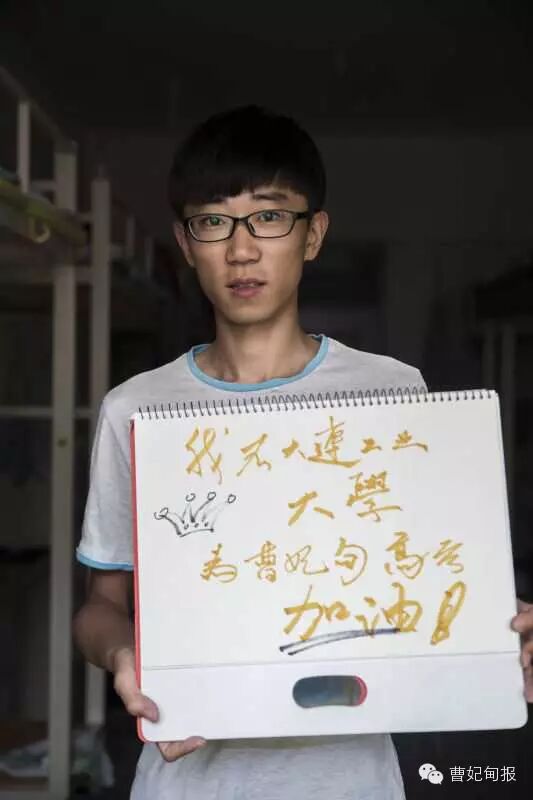 我在大連工业
大學
为曹妃甸高考
加油!
曹妃甸报